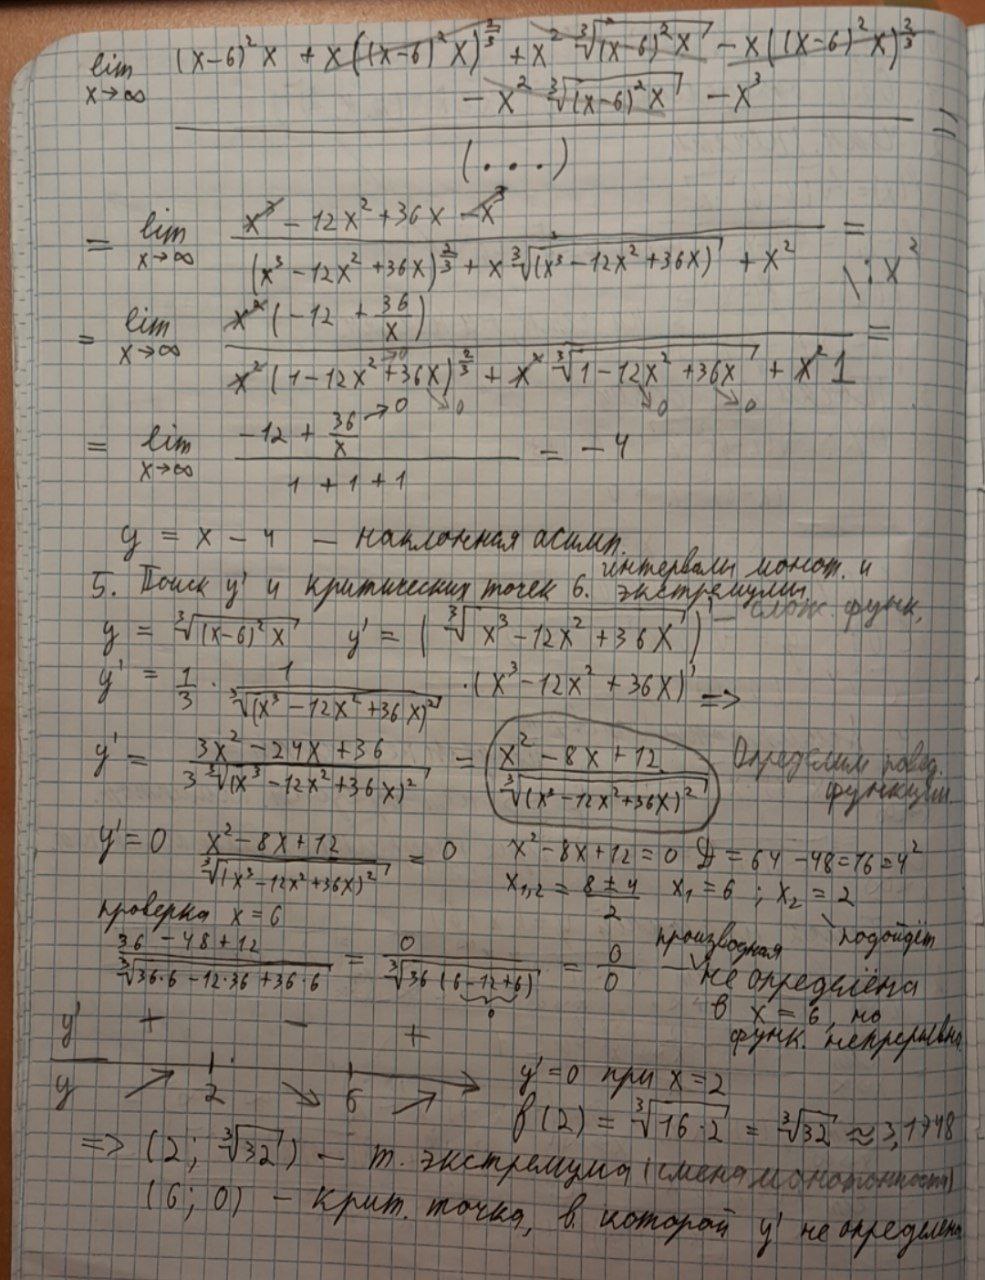 lim x→∞ (x-6)²x + x((x-6)²x)^(2/3) + x² ∛((x-6)²x) - x((x-6)²x)^(2/3)
- x² ∛((x-6)²x) - x³ =
(...)
= lim x→∞ (x³ - 12x² + 36x - x³) / ((x³ - 12x² + 36x)^(2/3) + x ∛(x³ - 12x² + 36x) + x²) = \ : x²
= lim x→∞ x²(-12 + 36/x) / (x²(1 - 12x² + 36x)^(2/3) + x² ∛(1 - 12x² + 36x) + x² 1) =
→0 →0 →0 →0
= lim x→∞ (-12 + 36/x →0) / (1 + 1 + 1) = -4
y = x - 4 — наклонная асимп.
5. Поиск y' и критических точек 6. интервалы монот. и экстремумы
y = ∛((x-6)²x) y' = (∛(x³ - 12x² + 36x))' — слож. функ.
y' = 1/3 · 1/∛((x³ - 12x² + 36x)²) · (x³ - 12x² + 36x)' =>
y' = (3x² - 24x + 36) / (3∛((x³ - 12x² + 36x)²)) = (x² - 8x + 12) / ∛((x³ - 12x² + 36x)²) — Определим повед. функции
y' = 0 (x² - 8x + 12) / ∛((x³ - 12x² + 36x)²) = 0 x² - 8x + 12 = 0 Д = 64 - 48 = 16 = 4²
x₁,₂ = (8 ± 4)/2 x₁ = 6 ; x₂ = 2
подойдёт
проверка x = 6
(36 - 48 + 12) / ∛(36·6 - 12·36 + 36·6) = 0 / ∛(36(6 - 12 + 6)) = 0/0 — производная не определена
0
в x = 6, но
функ. непрерывна.
y' + - +
y ↗ 2 ↘ 6 ↗
y' = 0 при x = 2
f(2) = ∛(16·2) = ∛32 ≈ 3,1748
=> (2; ∛32) — т. экстремума (смена монотонности)
(6; 0) - крит. точка, в которой y' не определена